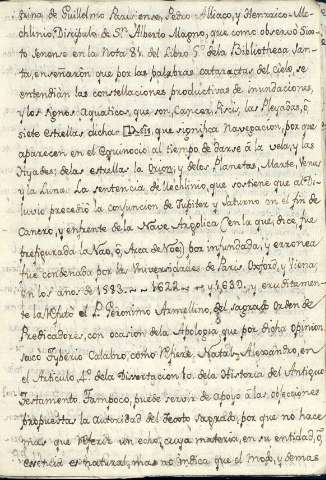 trina de Guillelmo Parisiense, Pedro Alliaco, y Henrrico Me-
chlinio, Discipulo de Sn. Alberto Magno, que como observó Six-
to Senense en la Nota 81. del Libro 5º. de la Bibliotheca San-
ta, enseñaron que por las palabras cataractas del cielo, se
entendian las constelaciones productivas de inundaciones,
y los signos aquaticos, que son, Cancer, Piscis, las Pleyadas, ó
siete estrellas dichas que significa Navegacion, por que
aparecen en el Equinocio al tiempo de darse á la vela, y las
Hyades; de las estrellas la Orion, y de los Planetas, Marte, Venus
y la Luna. La sentencia de Mechlinio, que sostiene que al Di-
luvio precedió la conjuncion de Jupiter y Saturno en el fin de
Cancro, y enfrente de la Nave Angelica en la que, dice, fue
prefigurada la Nao, ó, Arca de Noe; por infundada, y erronea
fue condenada por las Universidades de Paris, Oxford, y Viena;
en los años de 1583. 1622. y 1639. y eruditamen-
te la el P. Geronimo Armellino, del sagrado Orden de
Predicadores, con ocasion de la Apologia que por dicha opinion
saco Tyberio Calabro, como refiere Natal Alexandro, en
el Articulo 4º. de la Dissertacion 10. de la Historia del Antiguo
Testamento. Tampoco, puede servir de apoyo á las objeciones
propuestas la autoridad del Texto sagrado, por que no hace
mas que referir un echo, cuya materia, en su entidad, ó
esencia es natural, mas no indica que el modo, y demas